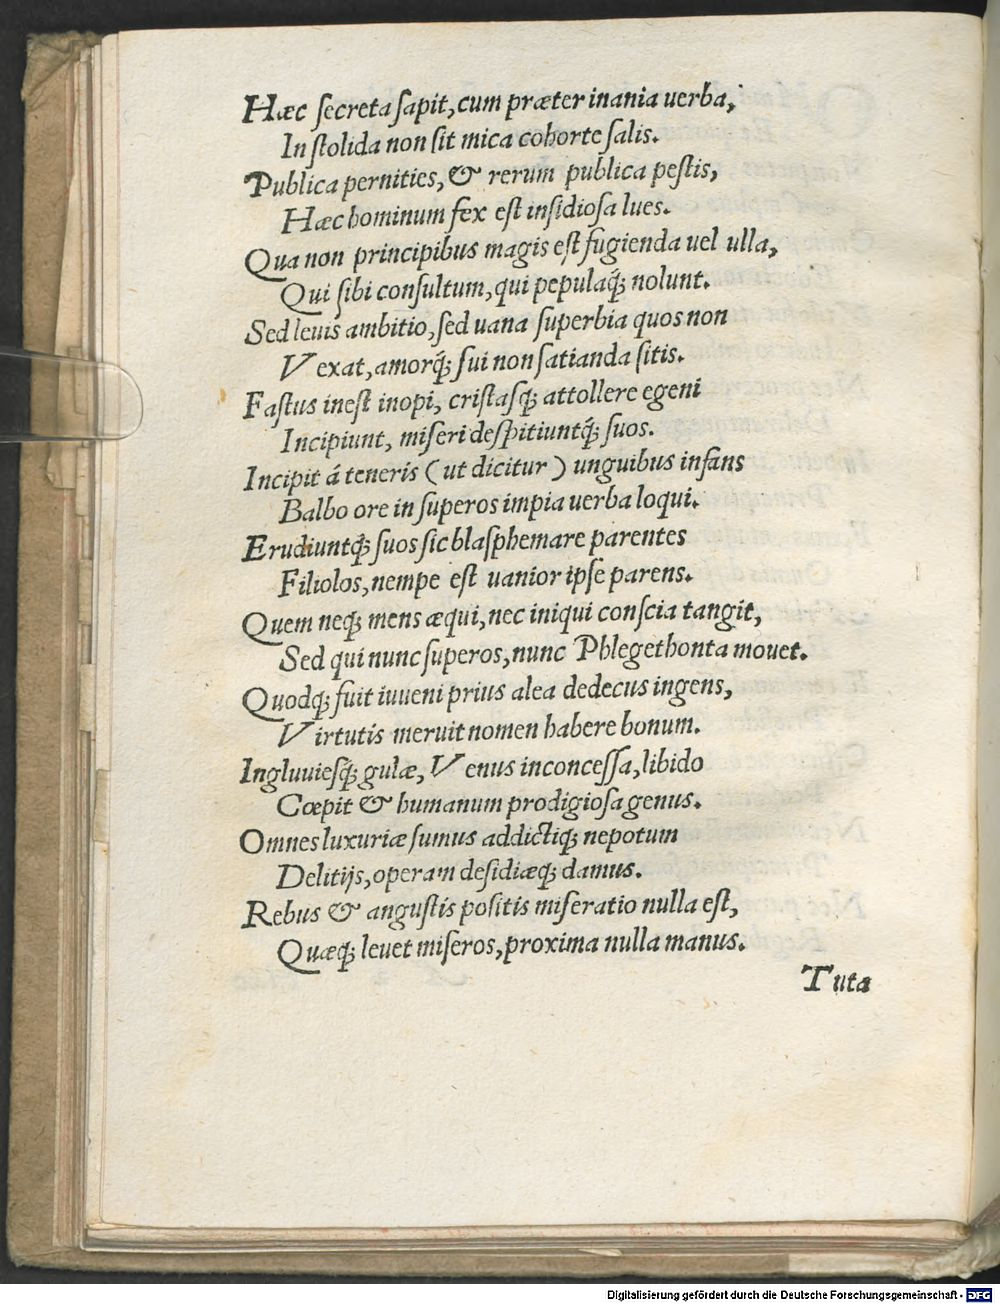 Hæc ſecreta ſapit, cum præter inania uerba,
In ſtolida non ſit mica cohorte ſalis.
Publica pernities, & rerum publica peſtis,
Hæc hominum fex eſt inſidioſa lues.
Qua non principibus magis eſt fugienda uel ulla,
Qui ſibi conſultum, qui pepulaq́; nolunt.
Sed leuis ambitio, ſed uana ſuperbia quos non
Vexat, amorq́; ſui non ſatianda ſitis.
Faſtus ineſt inopi, criſtaſq; attollere egeni
Incipiunt, miſeri deſpitiuntq́; ſuos.
Incipit á teneris (ut dicitur) unguibus infans
Balbo ore in ſuperos impia uerba loqui.
Erudiuntq́; ſuos ſic blaſphemare parentes
Filiolos, nempe eſt uanior ipſe parens.
Quem neq; mens æqui, nec iniqui conſcia tangit,
Sed qui nunc ſuperos, nunc Phlegethonta mouet.
Quodq; fuit iuueni prius alea dedecus ingens,
Virtutis meruit nomen habere bonum.
Ingluuieſq́; gulæ, Venus inconceſſa, libido
Cœpit & humanum prodigioſa genus.
Omnes luxuriæ ſumus addictiq; nepotum
Delitijs, operam deſidiæq; damus.
Rebus & anguſtis poſitis miſeratio nulla eſt,
Quæq; leuet miſeros, proxima nulla manus.
Tuta
Digitalisierung gefördert durch die Deutsche Forschungsgemeinschaft - DFG